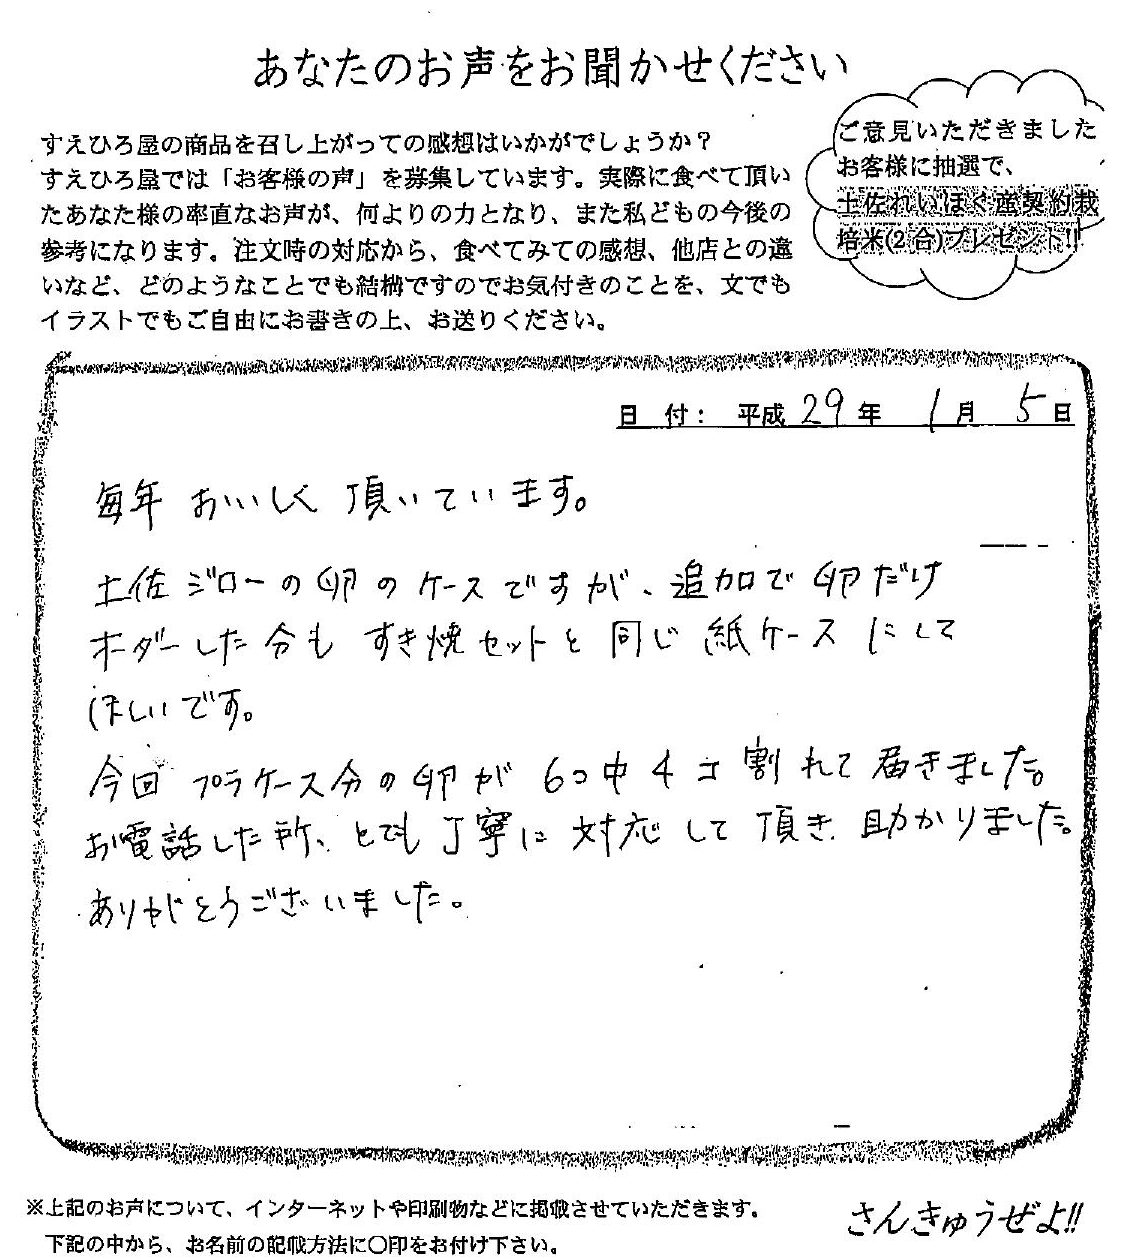 あなたのお声をお聞かせください
すえひろ屋の商品を召し上がっての感想はいかがでしょうか？
すえひろ屋では「お客様の声」を募集しています。実際に食べて頂い
たあなた様の率直なお声が、何よりの力となり、また私どもの今後の
参考になります。注文時の対応から、食べてみての感想、他店との違
いなど、どのようなことでも結構ですのでお気付きのことを、文でも
イラストでもご自由にお書きの上、お送りください。
ご意見いただきました
お客様に抽選で、
土佐れいほく産契約栽
培米(2合)プレゼント!!
日 付： 平成 29 年 1 月 5 日
毎年 おいしく 頂いています。
土佐ジローの卵のケースですが、追加で卵だけ
オーダーした分も すき焼セットと同じ紙ケースにして
ほしいです。
今回 プラケース分の卵が 6コ中4コ割れて届きました。
お電話した所、とても丁寧に対応して頂き、助かりました。
ありがとうございました。
※上記のお声について、インターネットや印刷物などに掲載させていただきます。
下記の中から、お名前の記載方法に〇印をお付け下さい。
さんきゅうぜよ!!